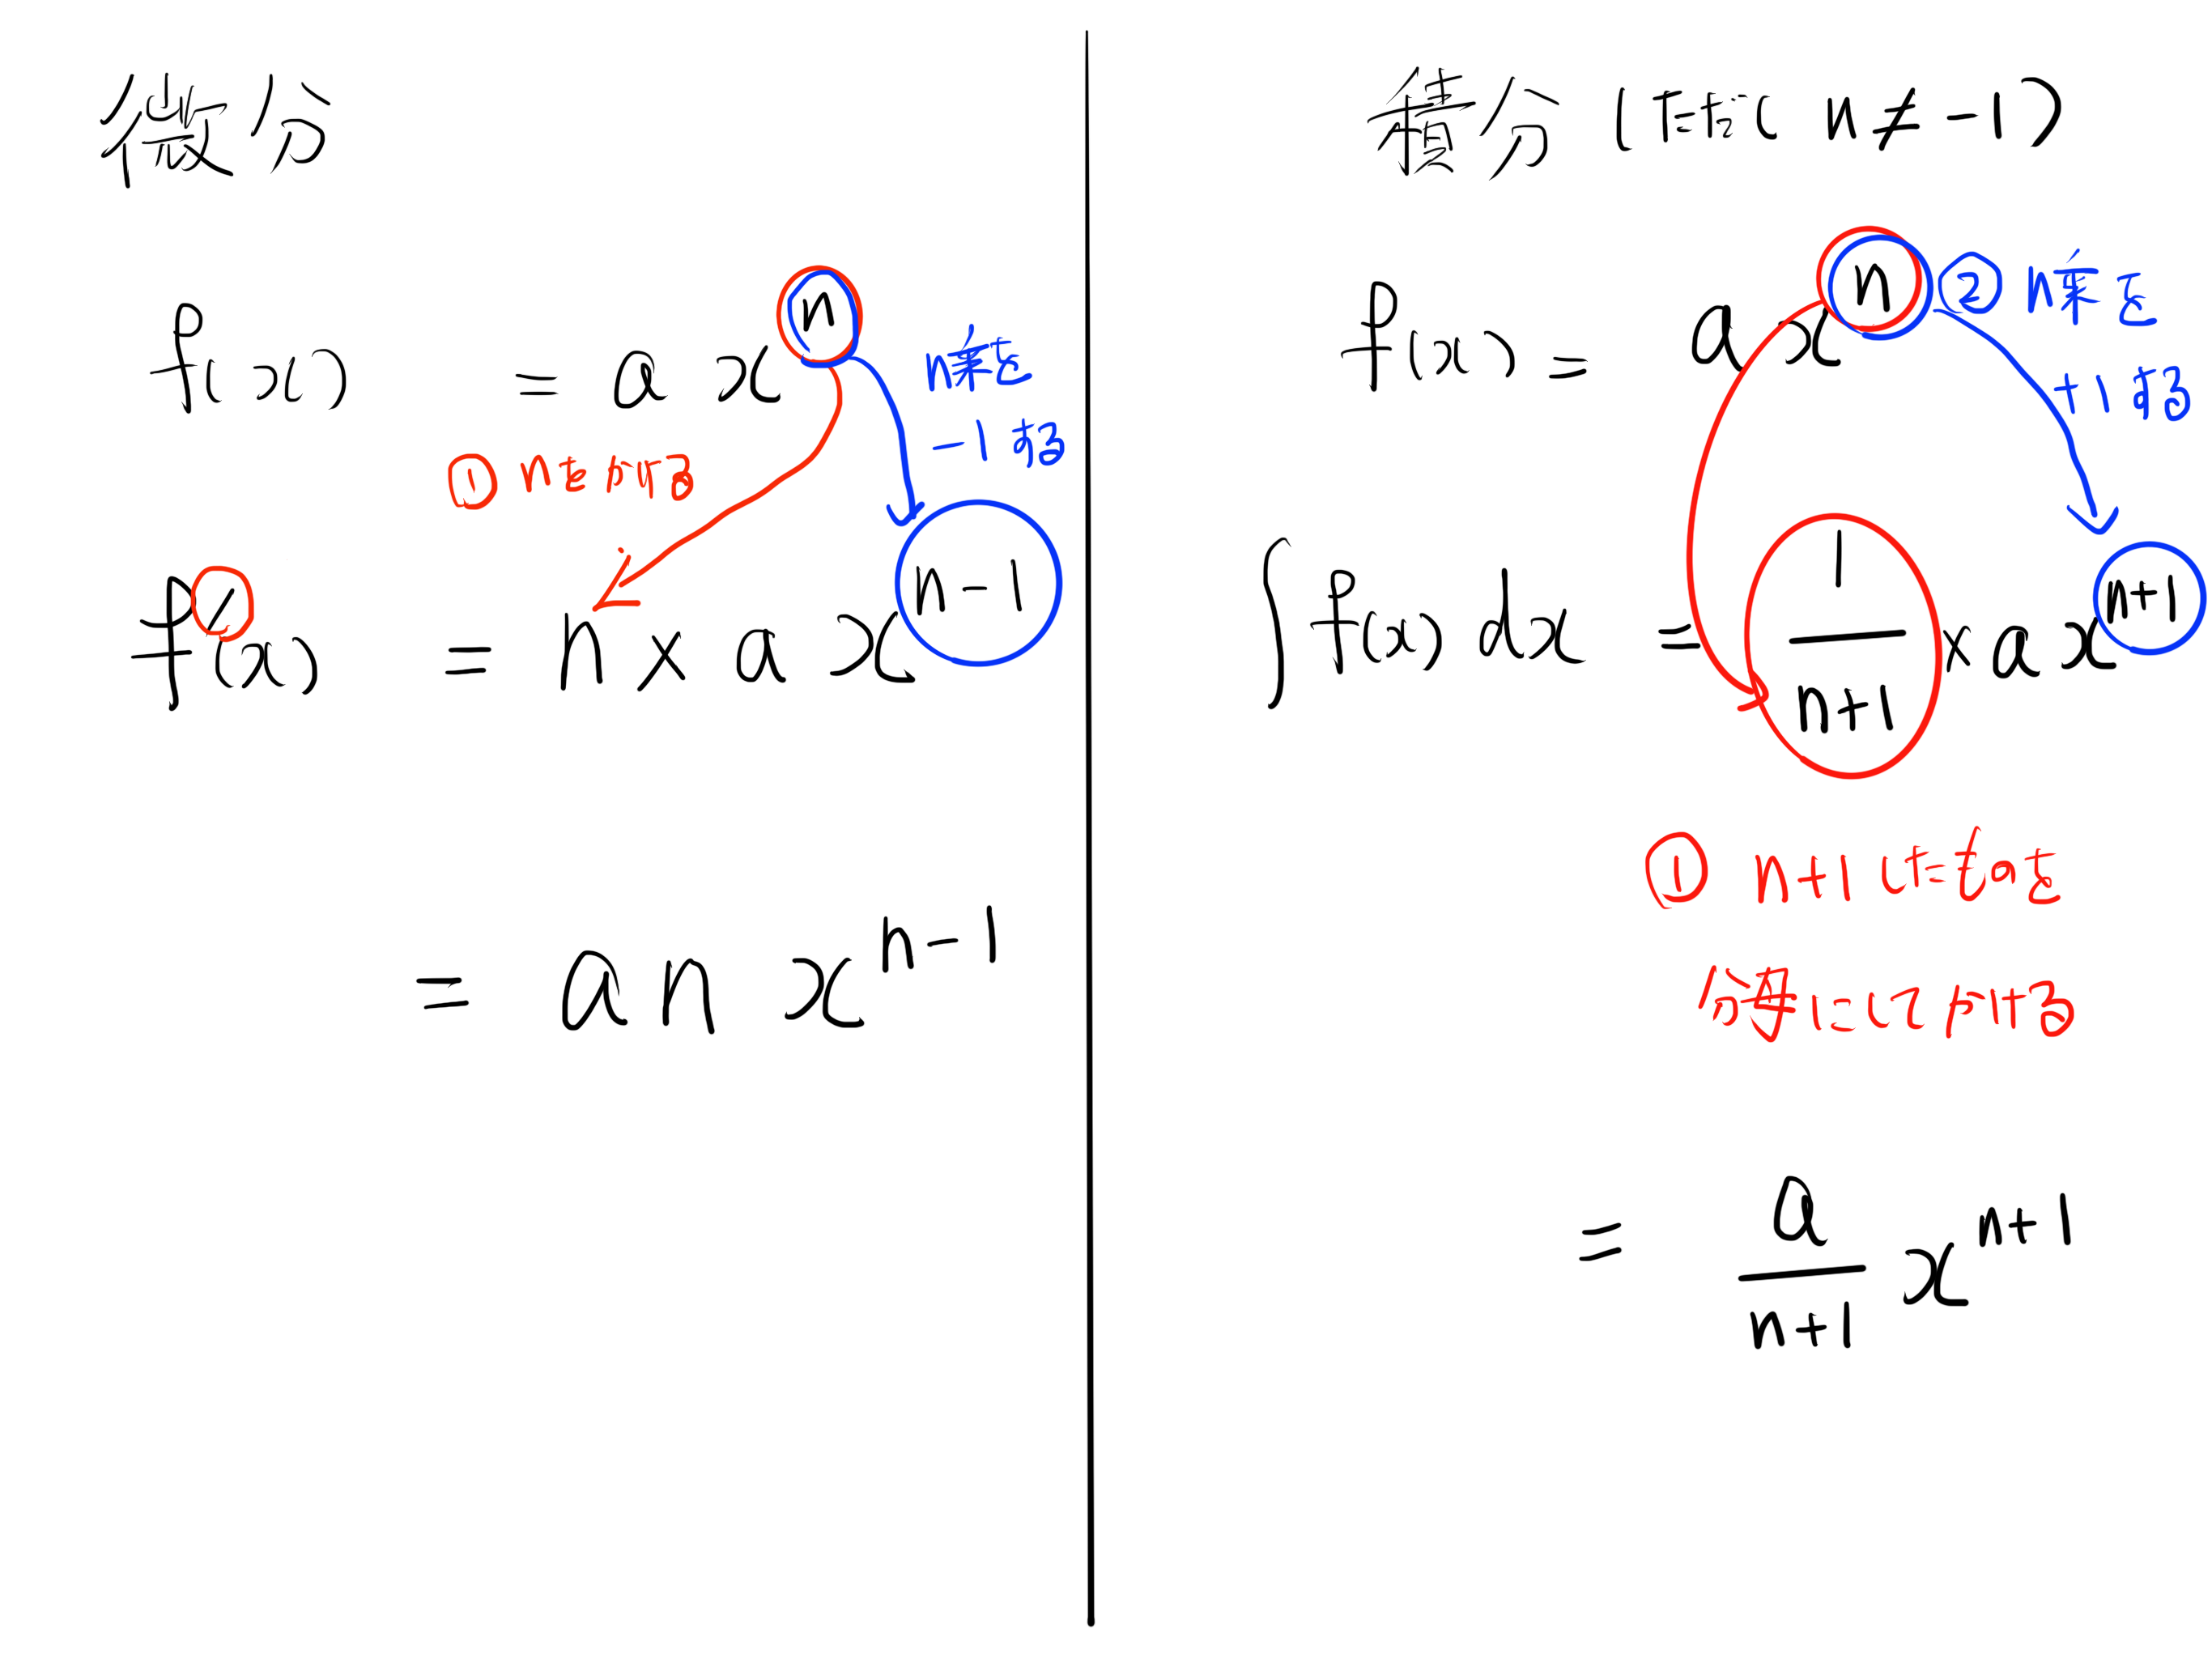 微分
f(x) = a x^n
n乗を
-1 する
① nをかける
f'(x) = n × a x^{n-1}
= a n x^{n-1}
積分 (ただし n ≠ -1)
f(x) = a x^n
② n乗を
+1する
∫ f(x) dx = \frac{1}{n+1} × a x^{n+1}
① n+1したものを
分母にしてかける
= \frac{a}{n+1} x^{n+1}